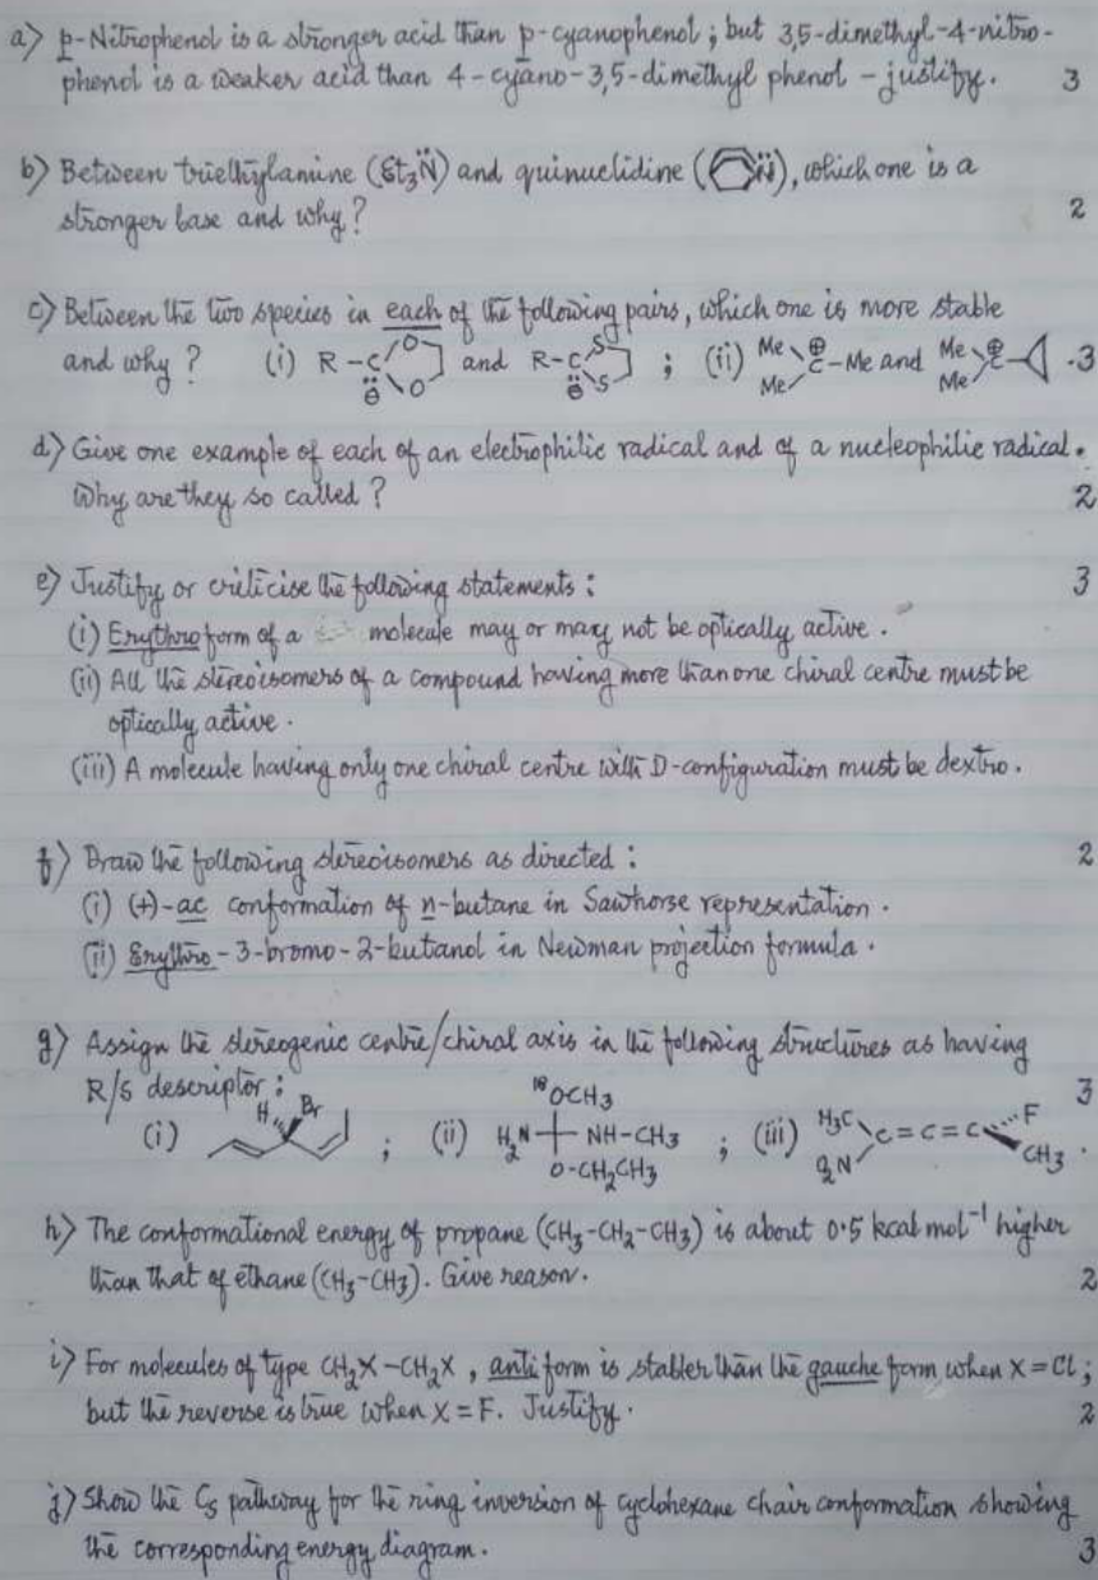 a) p-Nitrophenol is a stronger acid than p-cyanophenol; but 3,5-dimethyl-4-nitro-
phenol is a weaker acid than 4-cyano-3,5-dimethyl phenol - justify. 3
b) Between triethylamine (Et3N̈) and quinuclidine (N̈), which one is a
stronger base and why? 2
c) Between the two species in each of the following pairs, which one is more stable
and why? (i) R-C⊖ O O and R-C⊖ S S ; (ii) Me Me C⊕-Me and Me Me C⊕ . 3
d) Give one example of each of an electrophilic radical and of a nucleophilic radical.
Why are they so called? 2
e) Justify or criticise the following statements: 3
(i) Erythro form of a molecule may or may not be optically active.
(ii) All the stereoisomers of a compound having more than one chiral centre must be
optically active.
(iii) A molecule having only one chiral centre with D-configuration must be dextro.
f) Draw the following stereoisomers as directed: 2
(i) (+)-ac conformation of n-butane in Sawhorse representation.
(ii) Erythro-3-bromo-2-butanol in Newman projection formula.
g) Assign the stereogenic centre/chiral axis in the following structures as having
R/S descriptor: 3
(i) H Br ; (ii) 18OCH3 H2N NH-CH3 O-CH2CH3 ; (iii) H3C O2N C=C=C F CH3 .
h) The conformational energy of propane (CH3-CH2-CH3) is about 0.5 kcal mol-1 higher
than that of ethane (CH3-CH3). Give reason. 2
i) For molecules of type CH2X-CH2X, anti form is stabler than the gauche form when X=Cl;
but the reverse is true when X=F. Justify. 2
j) Show the Cs pathway for the ring inversion of cyclohexane chair conformation showing
the corresponding energy diagram. 3